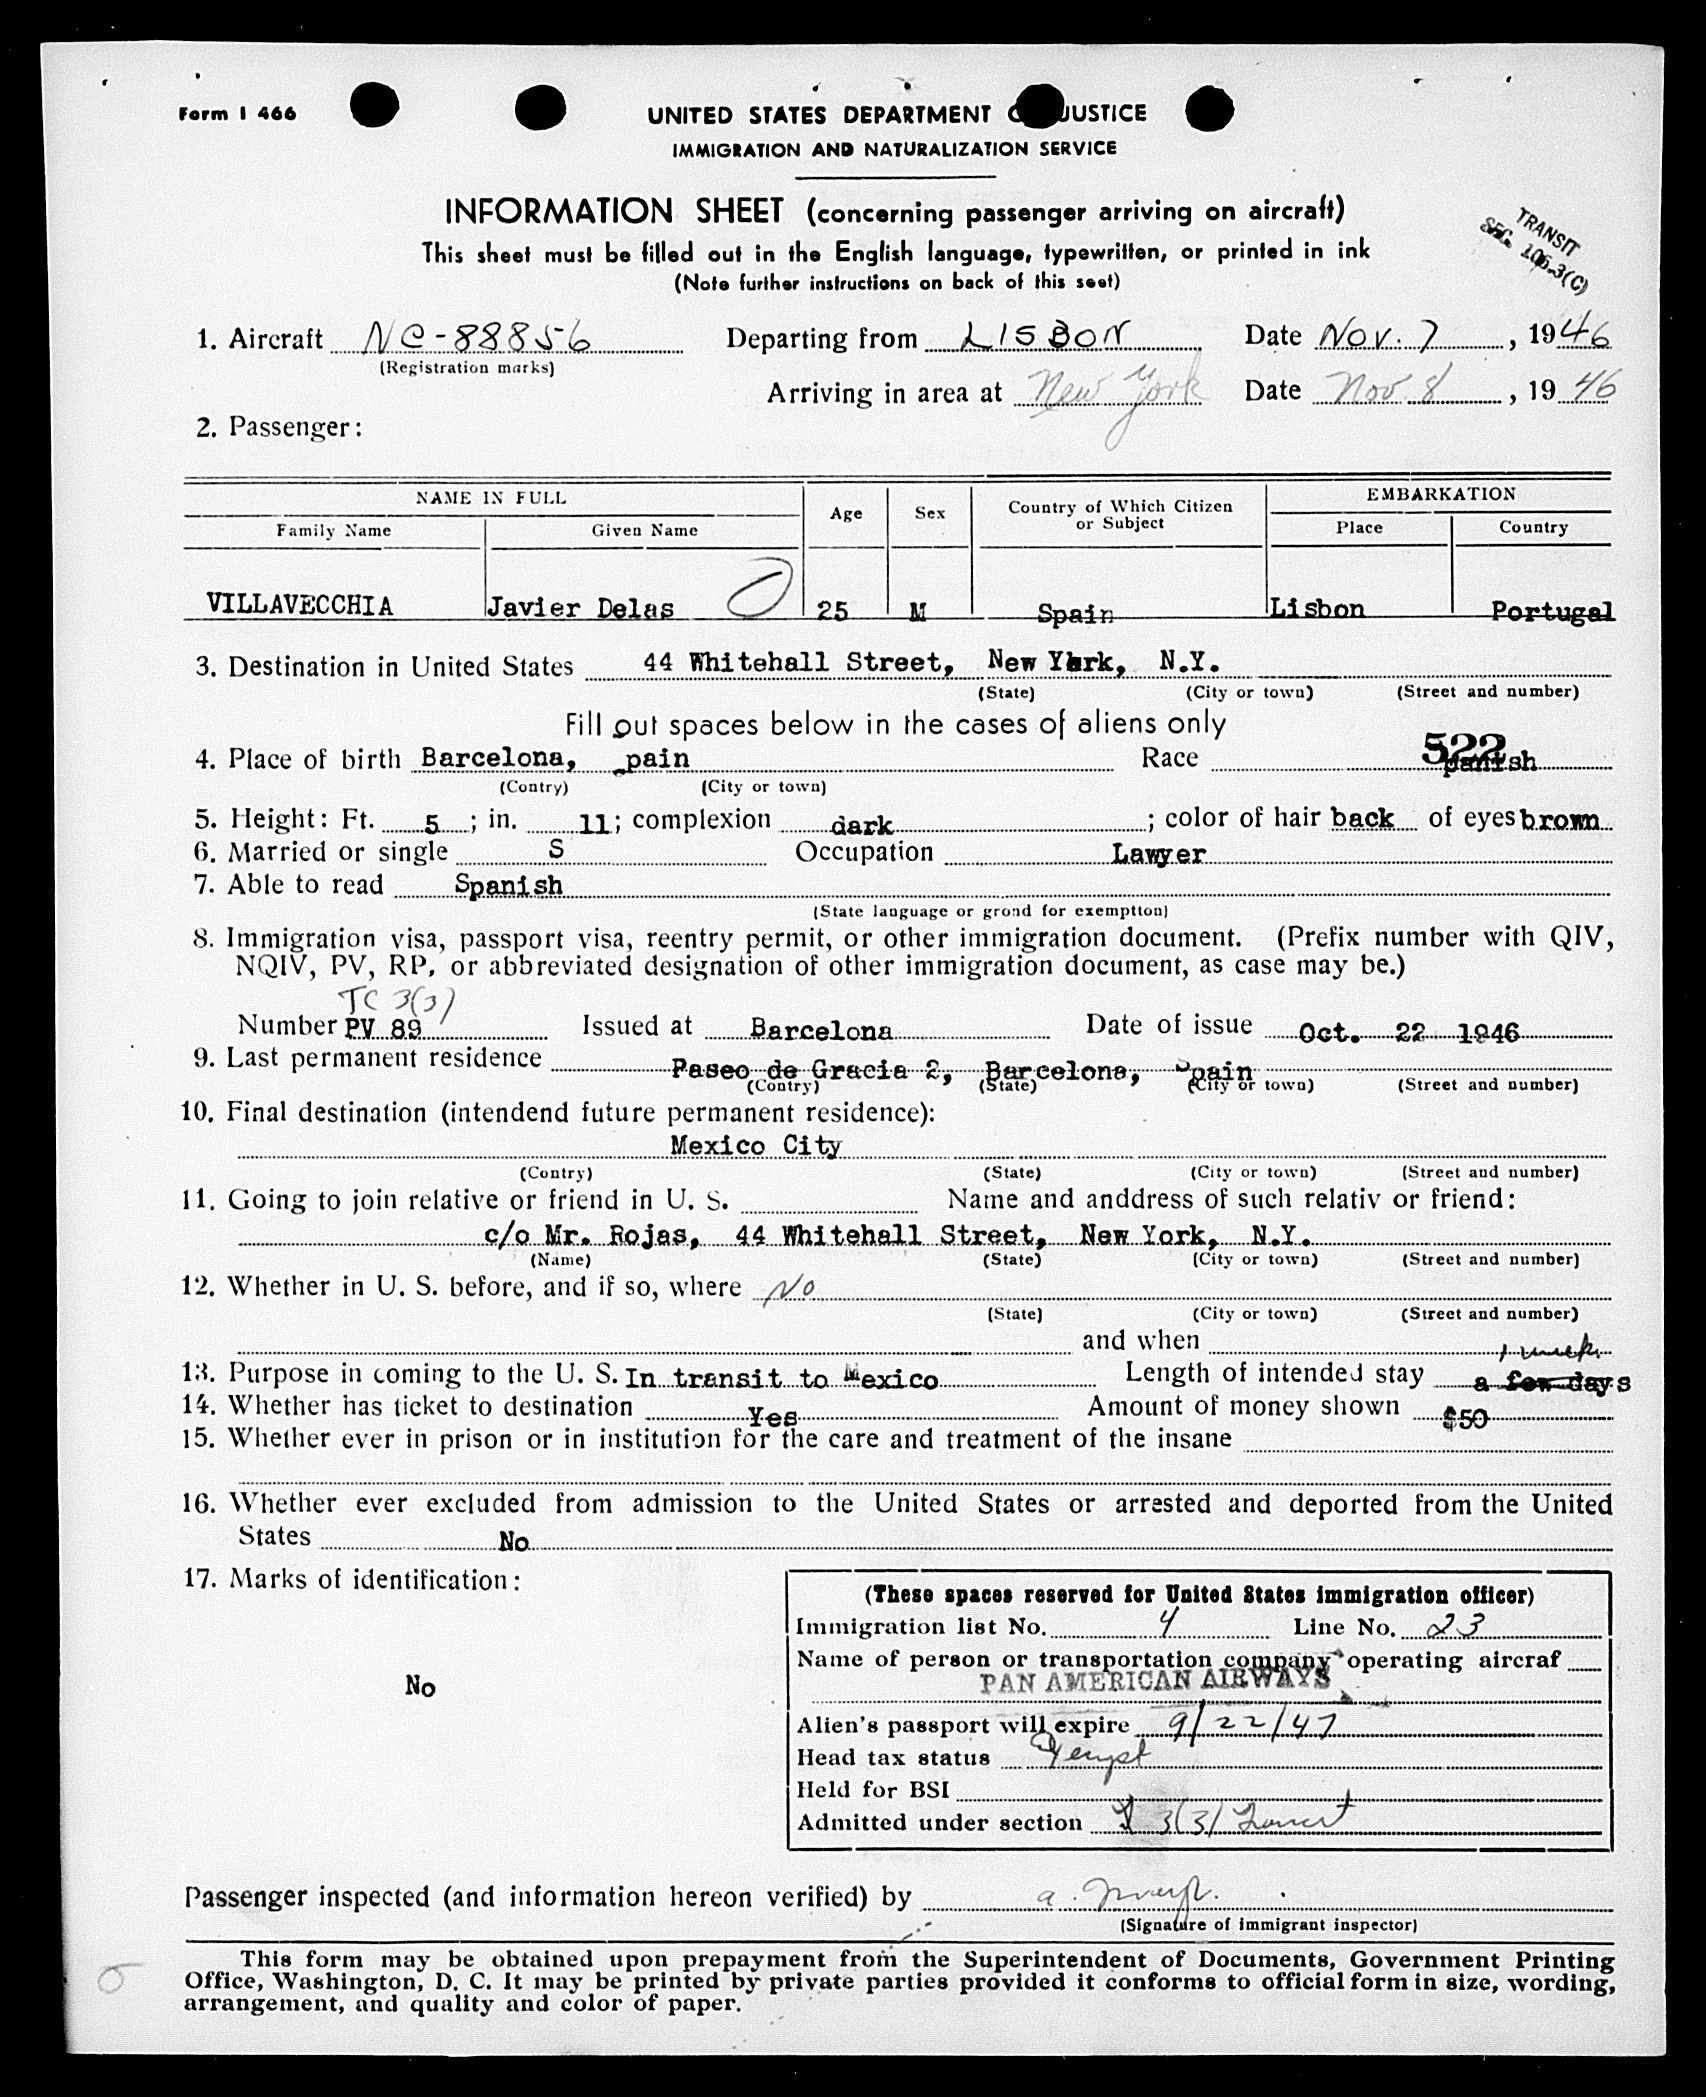 Form I 466
UNITED STATES DEPARTMENT JUSTICE
IMMIGRATION AND NATURALIZATION SERVICE
INFORMATION SHEET (concerning passenger arriving on aircraft)
This sheet must be filled out in the English language, typewritten, or printed in ink
(Note further instructions on back of this seet)
TRANSIT
SEC. 106.3(C)
1. Aircraft NC-88856 Departing from LISBON Date Nov. 7, 1946
(Registration marks)
Arriving in area at New York Date Nov 8, 1946
2. Passenger:
NAME IN FULL Age Sex Country of Which Citizen or Subject EMBARKATION
Family Name Given Name Place Country
VILLAVECCHIA Javier Delas 25 M Spain Lisbon Portugal
3. Destination in United States 44 Whitehall Street, New York, N.Y.
(State) (City or town) (Street and number)
Fill out spaces below in the cases of aliens only
522
4. Place of birth Barcelona, pain Race panish
(Contry) (City or town)
5. Height: Ft. 5; in. 11; complexion dark; color of hair back of eyes brown
6. Married or single S Occupation Lawyer
7. Able to read Spanish
(State language or grond for exemption)
8. Immigration visa, passport visa, reentry permit, or other immigration document. (Prefix number with QIV,
NQIV, PV, RP, or abbreviated designation of other immigration document, as case may be.)
TC 3(3)
Number PV 89 Issued at Barcelona Date of issue Oct. 22 1946
9. Last permanent residence Paseo de Gracia 2, Barcelona, Spain
(Contry) (State) (City or town) (Street and number)
10. Final destination (intendend future permanent residence):
Mexico City
(Contry) (State) (City or town) (Street and number)
11. Going to join relative or friend in U. S. Name and anddress of such relativ or friend:
c/o Mr. Rojas, 44 Whitehall Street, New York, N.Y.
(Name) (State) (City or town) (Street and number)
12. Whether in U. S. before, and if so, where No
(State) (City or town) (Street and number)
and when
1 week
13. Purpose in coming to the U. S. In transit to Mexico Length of intended stay a few days
14. Whether has ticket to destination Yes Amount of money shown $50
15. Whether ever in prison or in institution for the care and treatment of the insane
16. Whether ever excluded from admission to the United States or arrested and deported from the United
States No
17. Marks of identification:
No
(These spaces reserved for United States immigration officer)
Immigration list No. 4 Line No. 23
Name of person or transportation company operating aircraf
PAN AMERICAN AIRWAYS
Alien's passport will expire 9/22/47
Head tax status Exempt
Held for BSI
Admitted under section 3(3) Transit
Passenger inspected (and information hereon verified) by
(Signature of immigrant inspector)
This form may be obtained upon prepayment from the Superintendent of Documents, Government Printing
Office, Washington, D. C. It may be printed by private parties provided it conforms to official form in size, wording,
arrangement, and quality and color of paper.